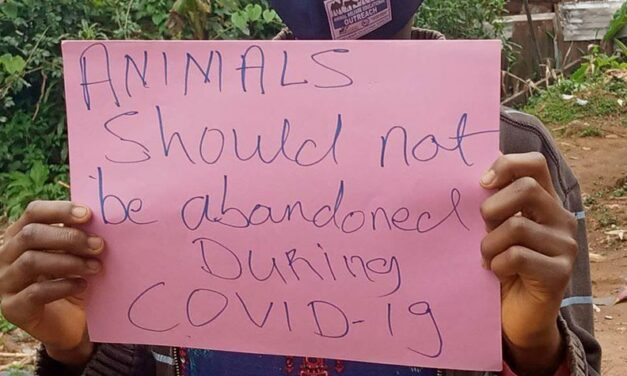 OUTREACH
ANIMALS
Should not
be abandoned
DURing
COVID-19